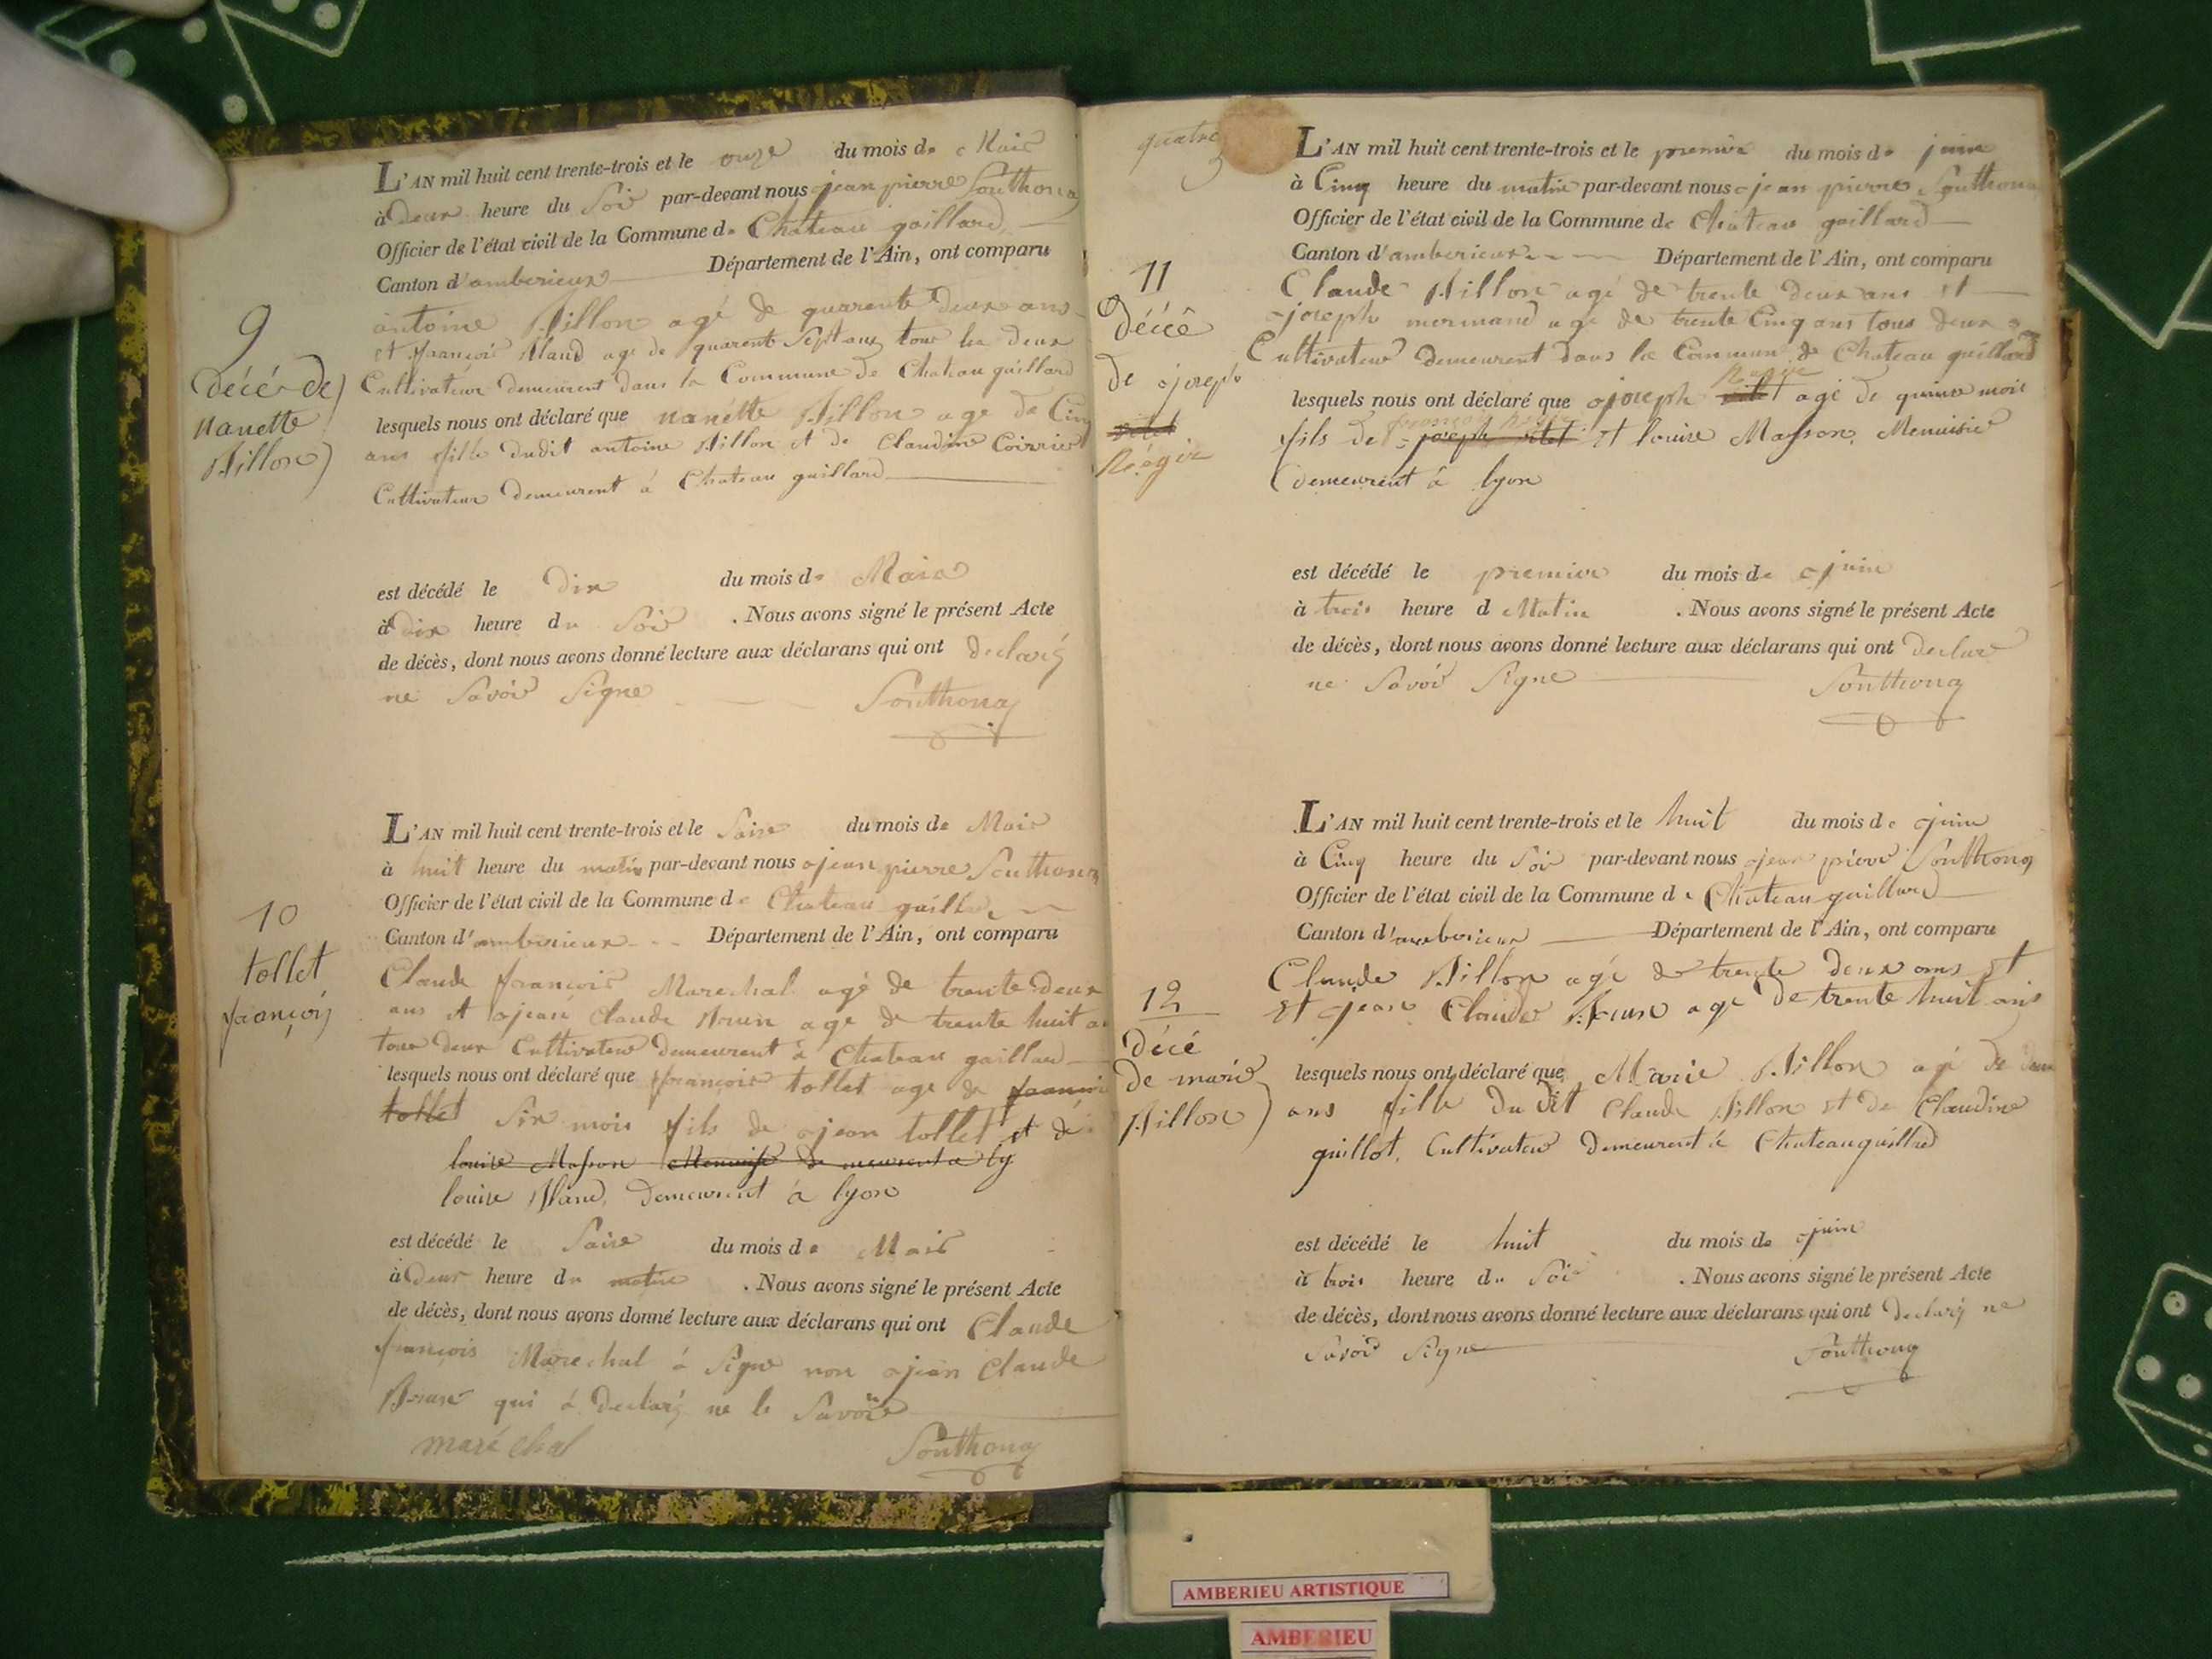 9
décé de
nanette
Billon
L'AN mil huit cent trente-trois et le onze du mois de Mais
à Deux heure du Soir par-devant nous jean pierre Southonax
Officier de l'état civil de la Commune de Chateau gaillard
Canton d'amberieux Département de l'Ain, ont comparu
antoine Billon agé de quarente Deux ans
et françois Bland age de quarent Sept ans tous les Deux
Cultivateur demeurent dans la Commune de Chateau gaillard
lesquels nous ont déclaré que nanétte Billon age de Cinq
ans fille dudit antoine Billon et de Claudine
Cultivateur demeurent à Chateau gaillard
est décédé le Dix du mois de Mais
à dix heure du Soir . Nous avons signé le présent Acte
de décès, dont nous avons donné lecture aux déclarans qui ont declaré
ne Savoir Signe Southonax
10
tollet
françois
L'AN mil huit cent trente-trois et le Saise du mois de Mais
à huit heure du matin par-devant nous jean pierre Southonax
Officier de l'état civil de la Commune de Chateau gaillard
Canton d'amberieux Département de l'Ain, ont comparu
Claude françois Marechal agé de trente Deux
ans et jean Claude Brun age de trente huit
tous deux Cultivateur demeurent à Chateau gaillard
lesquels nous ont déclaré que françois tollet age de françois
tollet Six mois fils de jean tollet et de
louise Masson Menuisié demeurent a ly
louise Bland, demeurent à lyon
est décédé le Saise du mois de Mais
à Deux heure du matin . Nous avons signé le présent Acte
de décès, dont nous avons donné lecture aux déclarans qui ont Claude
françois Marechal à Signe non jean Claude
Brun qui à declaré ne le Savoir
maréchal Southonax
quatre
11
Décé
De joseph
vitet
L'AN mil huit cent trente-trois et le premier du mois de juin
à Cinq heure du matin par-devant nous jean pierre Southonax
Officier de l'état civil de la Commune de Chateau gaillard
Canton d'amberieux Département de l'Ain, ont comparu
Claude Billon agé de trente deux ans et
joseph mermand agé de trente Cinq ans tous deux
Cultivateur demeurent dans la Commune de Chateau gaillard
lesquels nous ont déclaré que joseph vitet agé de quinze mois
fils de joseph vitet et louise Masson, Menuisié
demeurent à lyon
est décédé le premier du mois de juin
à trois heure d Matin . Nous avons signé le présent Acte
de décès, dont nous avons donné lecture aux déclarans qui ont declare
ne Savoir Signe Southonax
12
Décé
de marie
Billon
L'AN mil huit cent trente-trois et le huit du mois de juin
à Cinq heure du Soir par-devant nous jean pierre Southonax
Officier de l'état civil de la Commune de Chateau gaillard
Canton d'amberieux Département de l'Ain, ont comparu
Claude Billon agé de trente deux ans et
et jean Claude Brun age de trente huit ans
lesquels nous ont déclaré que Marie Billon agé de deux
ans fille Du dit Claude Billon et de Claudine
guillot, Cultivateur demeurent à Chateau gaillard
est décédé le huit du mois de juin
à trois heure du Soir . Nous avons signé le présent Acte
de décès, dont nous avons donné lecture aux déclarans qui ont declaré ne
Savoir Signe Southonax
AMBERIEU ARTISTIQUE
AMBERIEU